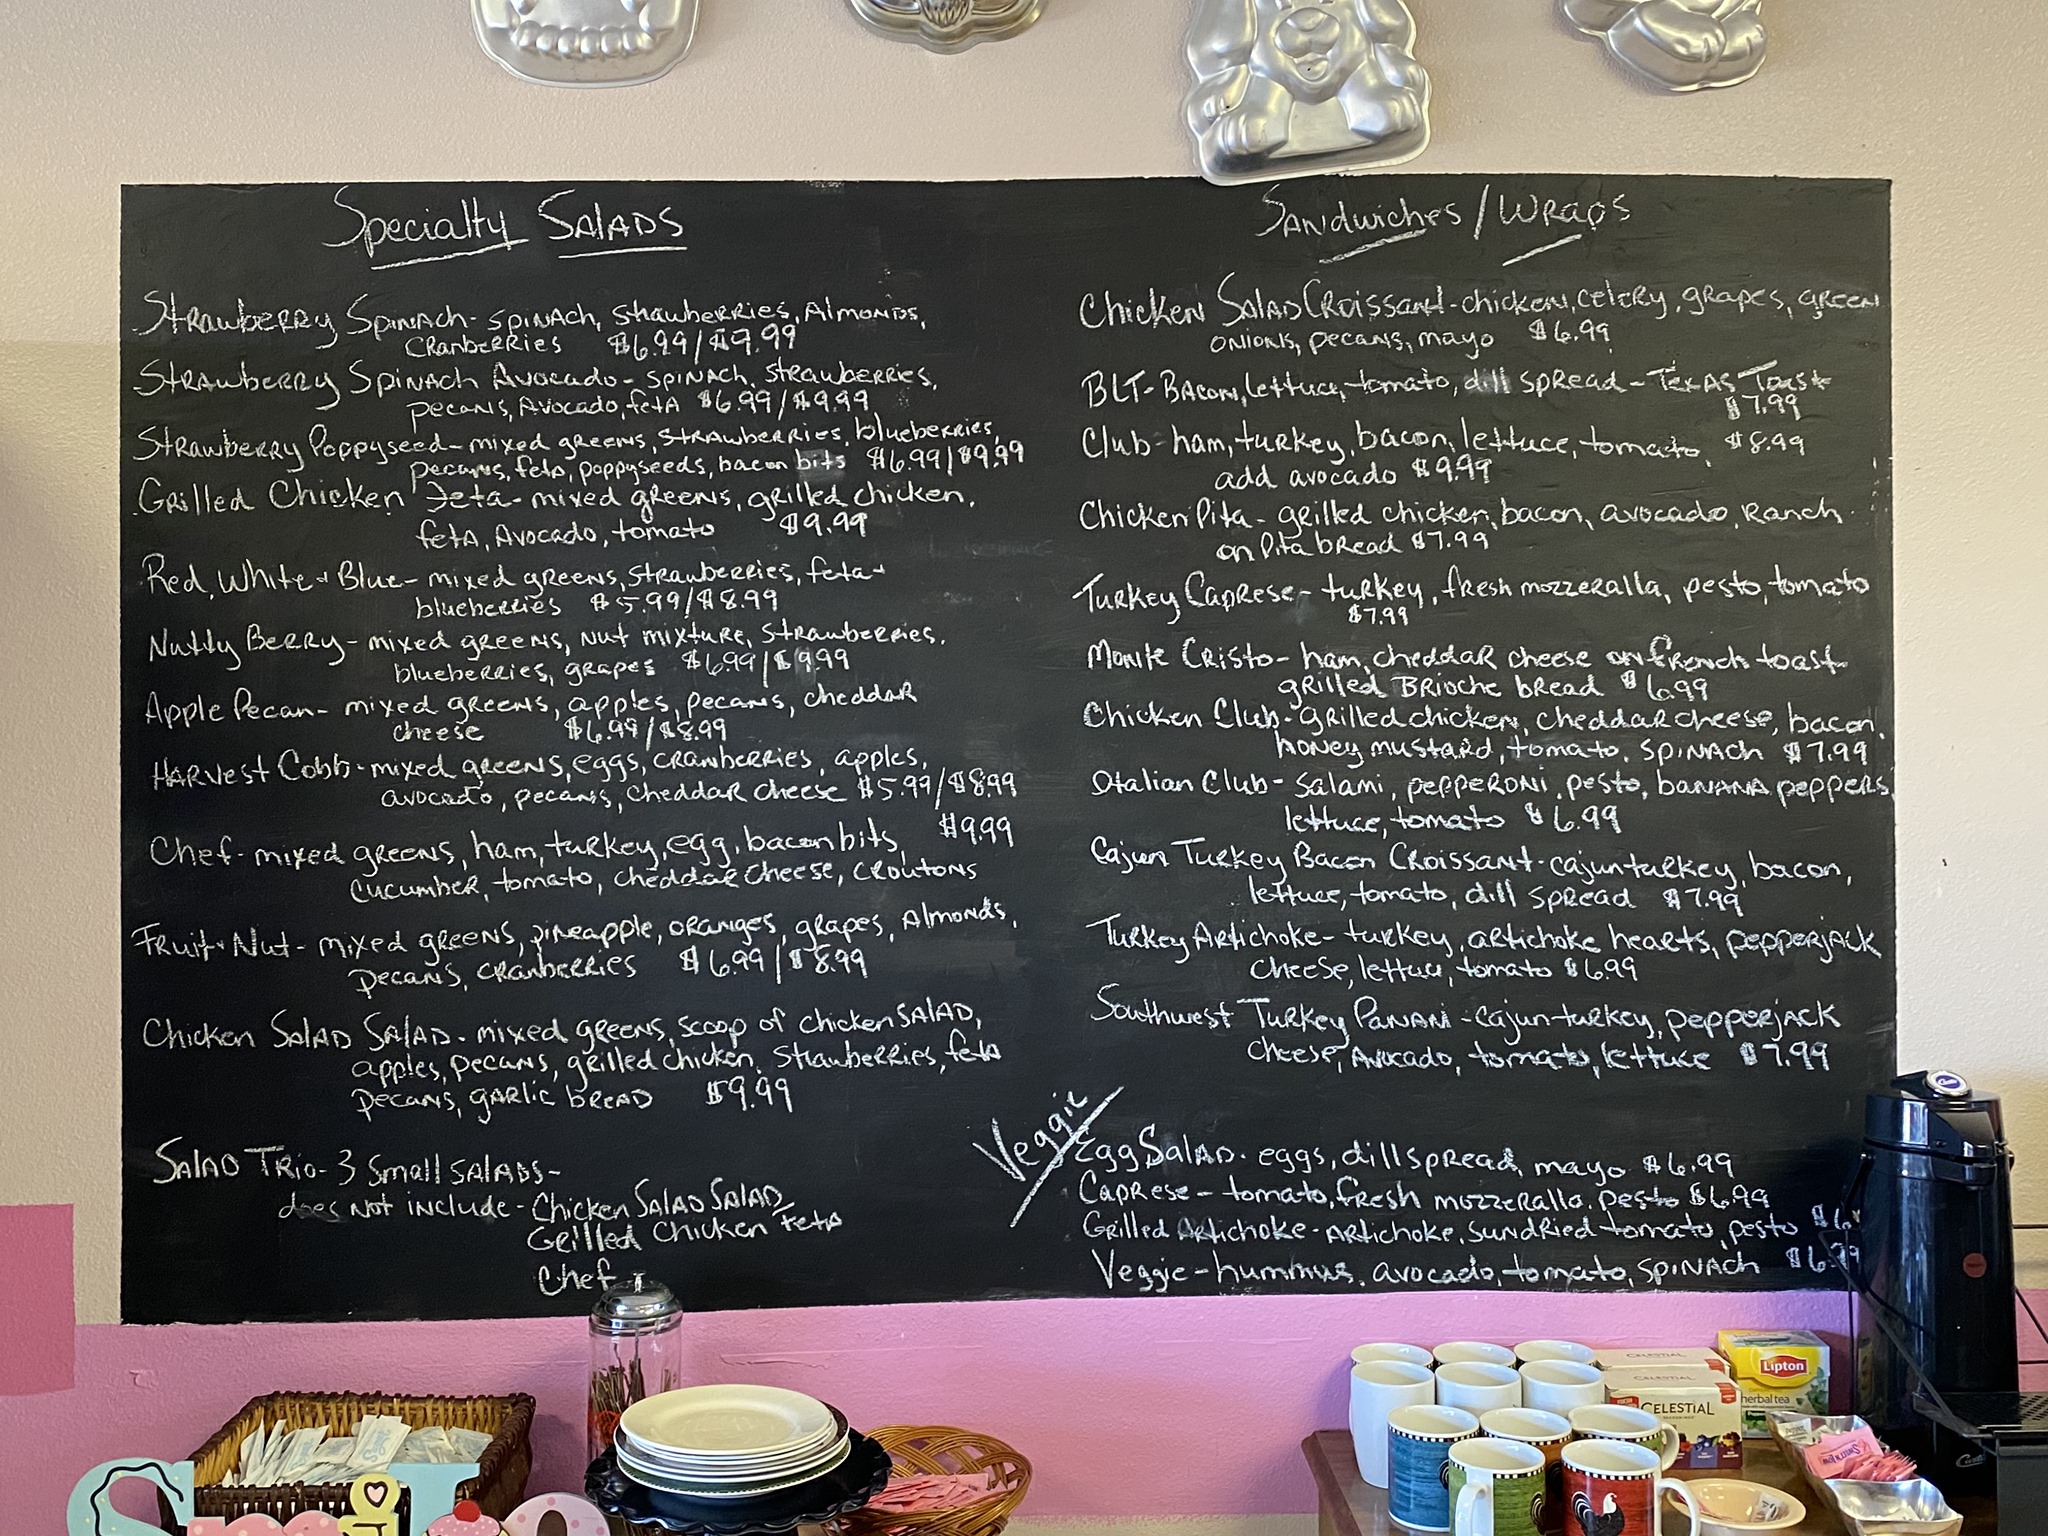 Specialty Salads
Strawberry Spinach - spinach, strawberries, Almonds,
cranberries $6.99/$9.99
Strawberry Spinach Avocado - spinach, strawberries,
pecans, Avocado, feta $6.99/$9.99
Strawberry Poppyseed - mixed greens, strawberries, blueberries,
pecans, feta, poppyseeds, bacon bits $6.99/$9.99
Grilled Chicken Feta - mixed greens, grilled chicken,
feta, Avocado, tomato $9.99
Red, White + Blue - mixed greens, strawberries, feta +
blueberries $5.99/$8.99
Nutty Berry - mixed greens, nut mixture, strawberries,
blueberries, grapes $6.99/$9.99
Apple Pecan - mixed greens, apples, pecans, cheddar
cheese $6.99/$8.99
Harvest Cobb - mixed greens, eggs, cranberries, apples,
avocado, pecans, cheddar cheese $5.99/$8.99
Chef - mixed greens, ham, turkey, egg, bacon bits, $9.99
cucumber, tomato, cheddar cheese, croutons
Fruit + Nut - mixed greens, pineapple, oranges, grapes, Almonds,
pecans, cranberries $6.99/$8.99
Chicken Salad Salad - mixed greens, scoop of chicken salad,
apples, pecans, grilled chicken, strawberries, feta
pecans, garlic bread $9.99
Salad Trio - 3 small salads -
does not include - Chicken Salad Salad/
Grilled Chicken Feta
Chef
Sandwiches/Wraps
Chicken Salad Croissant - chicken, celery, grapes, green
onions, pecans, mayo $6.99
BLT - Bacon, lettuce, tomato, dill spread - Texas Toast
$7.99
Club - ham, turkey, bacon, lettuce, tomato, $8.99
add avocado $9.99
Chicken Pita - grilled chicken, bacon, avocado, Ranch
on Pita bread $7.99
Turkey Caprese - turkey, fresh mozzeralla, pesto, tomato
$7.99
Monte Cristo - ham, cheddar cheese on french toast
grilled Brioche bread $6.99
Chicken Club - grilled chicken, cheddar cheese, bacon,
honey mustard, tomato, spinach $7.99
Italian Club - salami, pepperoni, pesto, banana peppers,
lettuce, tomato $6.99
Cajun Turkey Bacon Croissant - cajun turkey, bacon,
lettuce, tomato, dill spread $7.99
Turkey Artichoke - turkey, artichoke hearts, pepperjack
cheese, lettuce, tomato $6.99
Southwest Turkey Panani - cajun turkey, pepperjack
cheese, Avocado, tomato, lettuce $7.99
Veggie
Egg Salad - eggs, dill spread, mayo $6.99
Caprese - tomato, fresh mozzeralla, pesto $6.99
Grilled Artichoke - Artichoke, sundried tomato, pesto
Veggie - hummus, avocado, tomato, spinach $6.99
Lipton
herbal tea
CELESTIAL
CELESTIAL
CELESTIAL